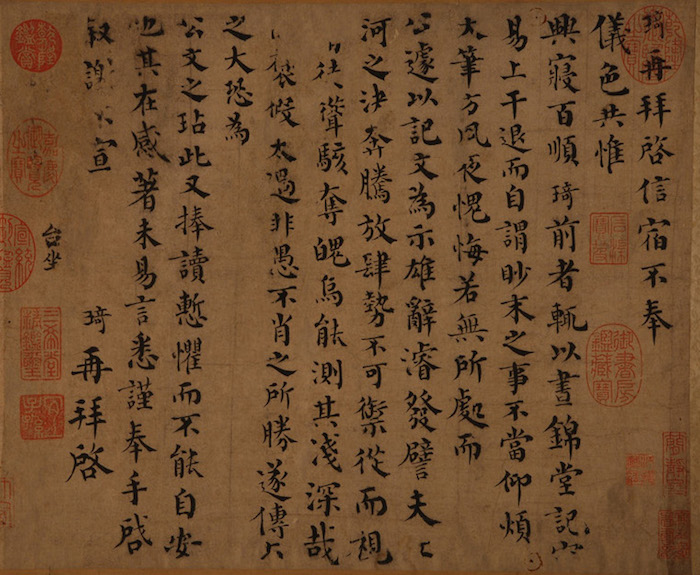 琦再拜啓信宿不奉
儀色共惟
興寢百順琦前者輒以晝錦堂記容
易上干退而自謂眇末之事不當仰煩
大筆方夙夜愧悔若無所處而
公遽以記文為示雄辭濬發譬夫
河之決奔騰放肆勢不可禦從而
徒聳駭奪魄烏能測其淺深哉
褒假太過非愚不肖之所勝遂傳
之大恐為
公文之玷此又捧讀慙懼而不能自安
也其在感著未易言悉謹奉手啓
敘謝不宣
琦再拜啓
台坐